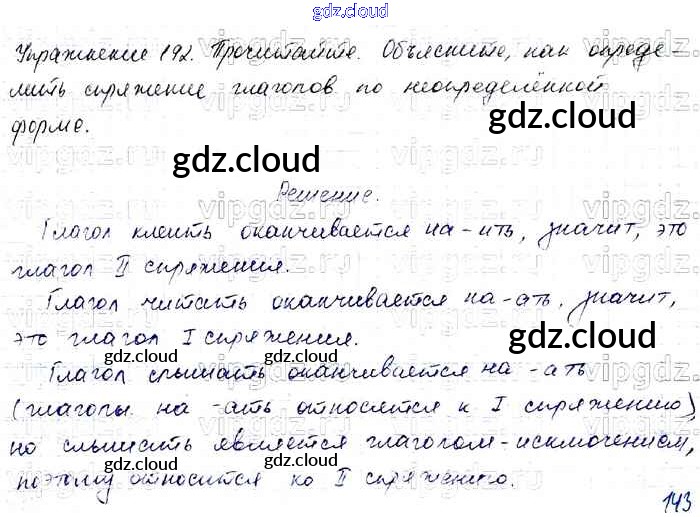 gdz.cloud
Упражнение 192. Прочитайте. Объясните, как опреде-
лить спряжение глаголов по неопределённой
форме.
gdz.cloud
gdz.cloud
Решение.
Глагол клеить оканчивается на -ить, значит, это
глагол II спряжения.
Глагол читать оканчивается на -ать, значит,
это глагол I спряжения.
gdz.cloud gdz.cloud
Глагол слышать оканчивается на -ать
(глаголы на -ать относятся к I спряжению),
но слышать является глаголом-исключением,
поэтому относится ко II спряжению.
gdz.cloud gdz.cloud
143